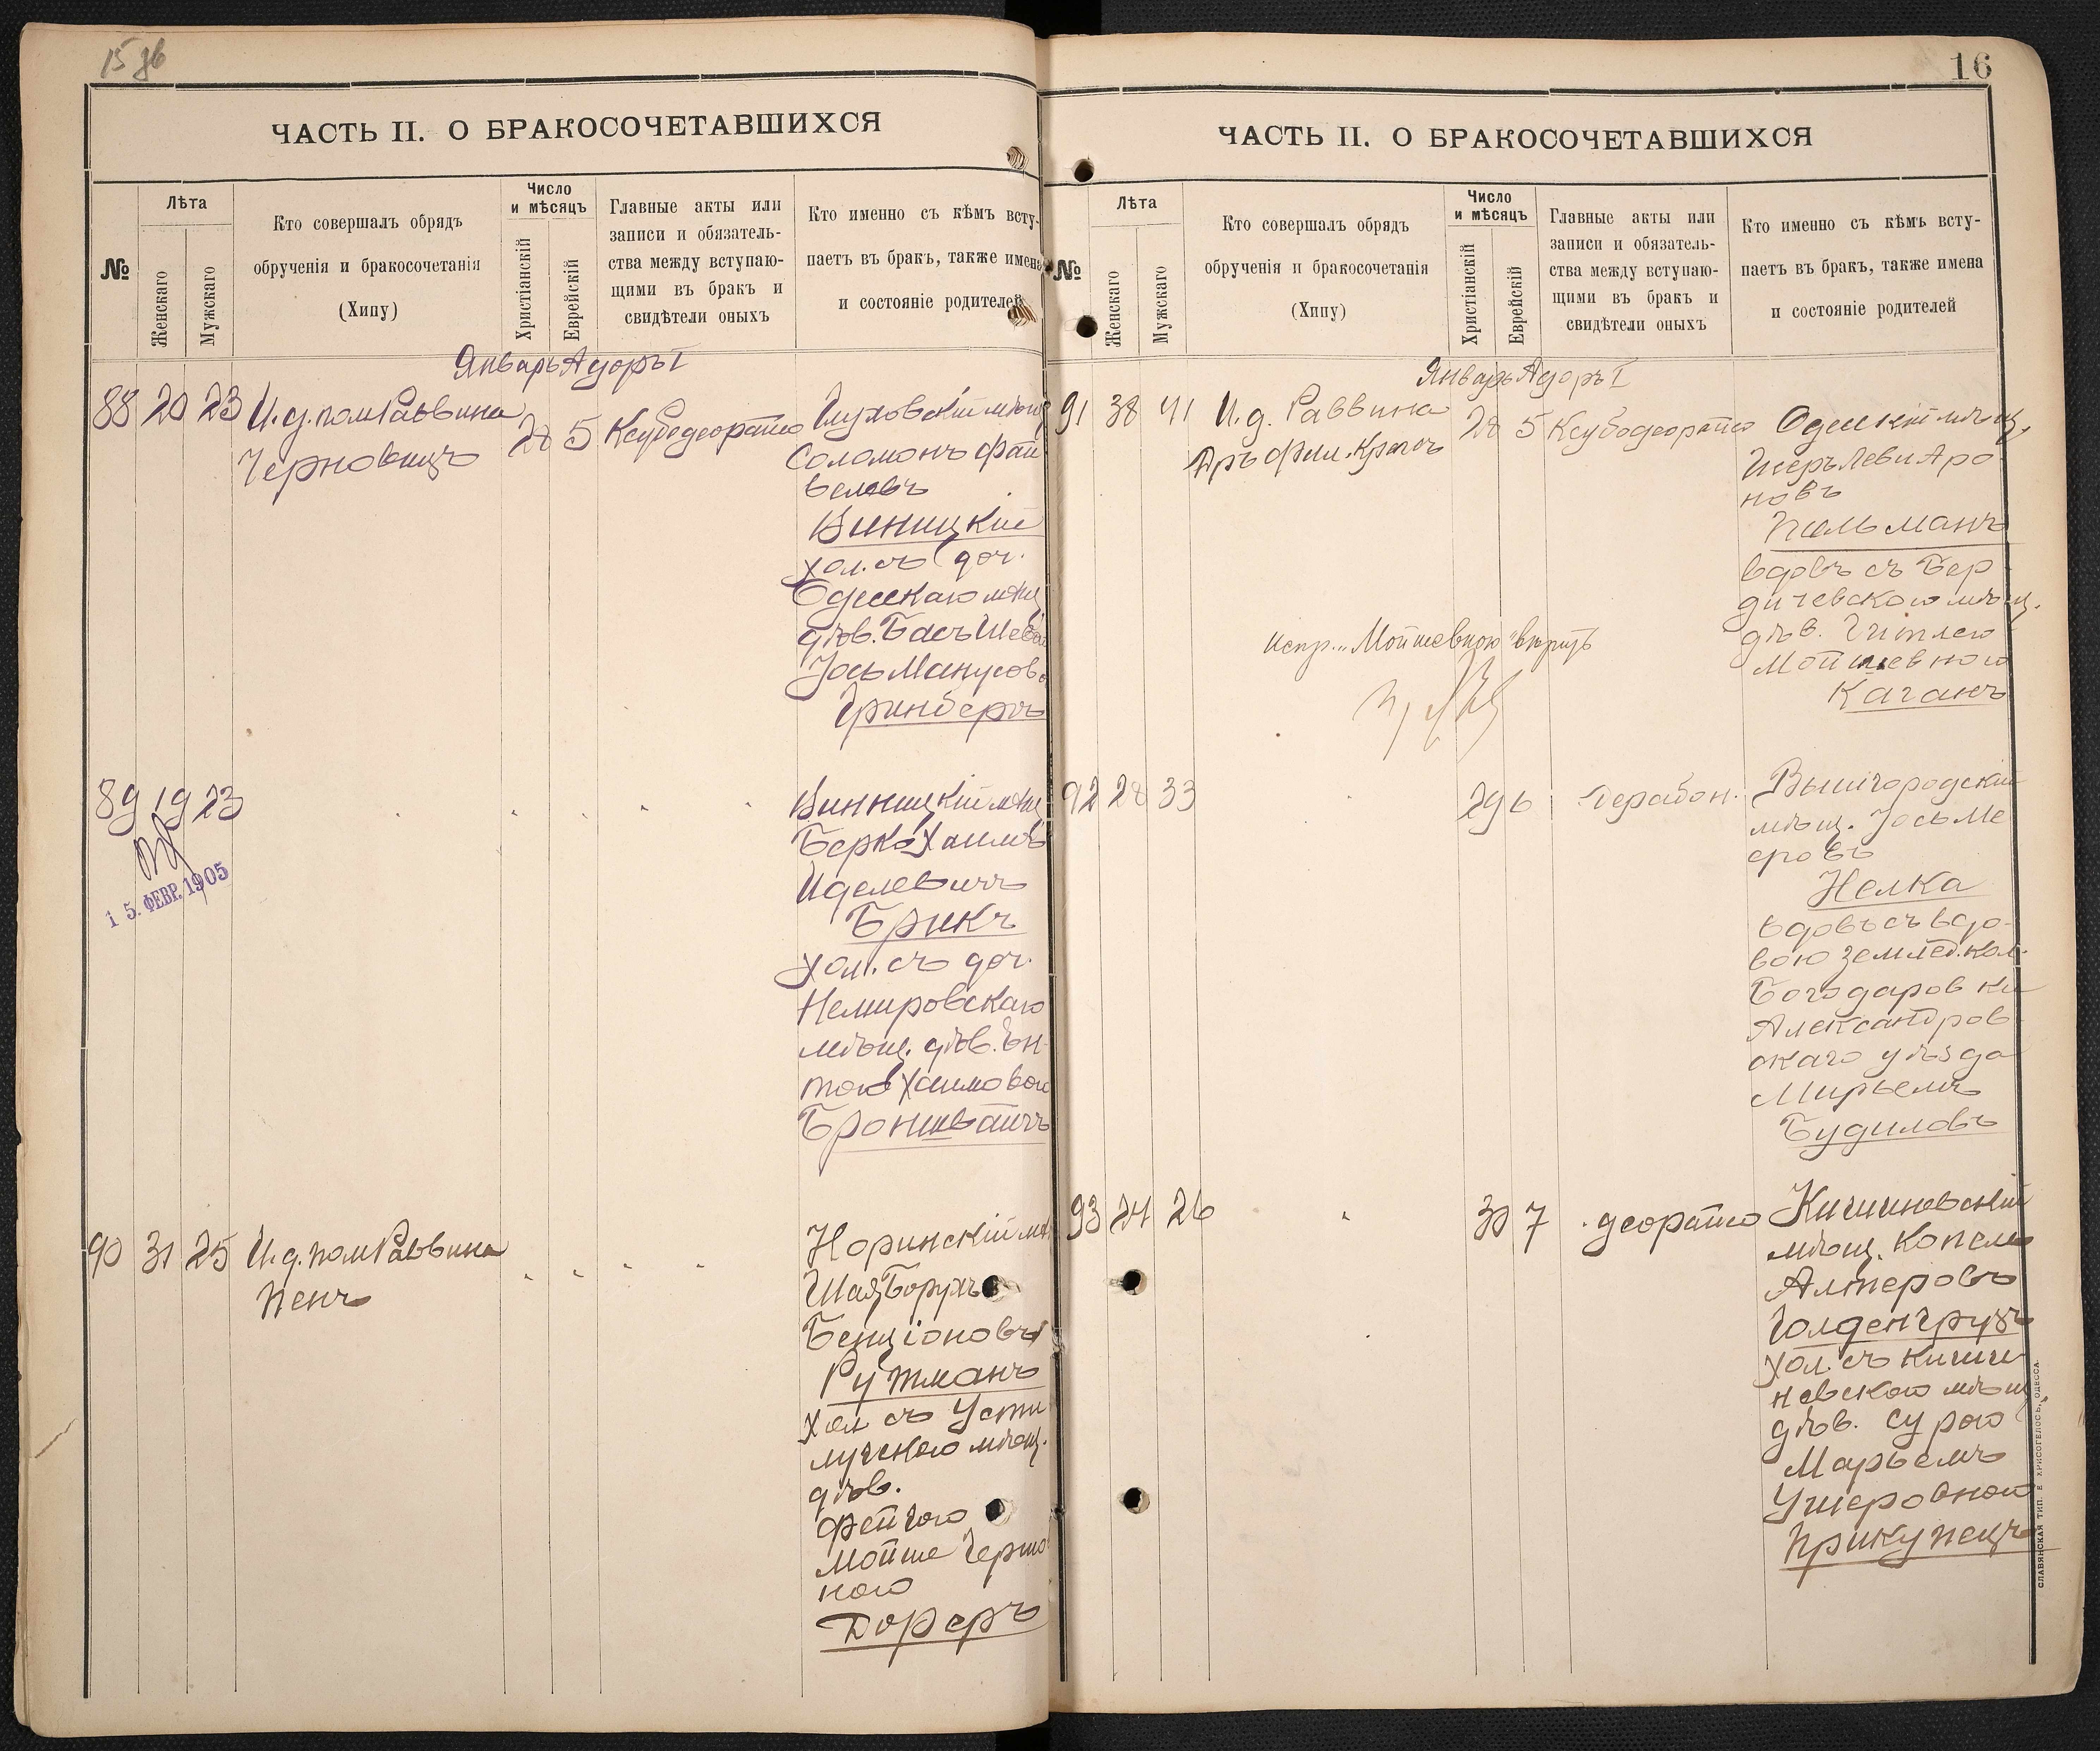 15 об
ЧАСТЬ II. О БРАКОСОЧЕТАВШИХСЯ
№
Лѣта
Женскаго
Мужскаго
Кто совершалъ обрядъ
обрученія и бракосочетанія
(Хипу)
Число
и мѣсяцъ
Христіанскій
Еврейскій
Главные акты или
записи и обязатель-
ства между вступаю-
щими въ бракъ и
свидѣтели оныхъ
Кто именно съ кѣмъ всту-
паетъ въ бракъ, также имена
и состояніе родителей
Январь Адоръ I
88 20 23 И.д. пом Раввина
Черновицъ
28 5
Глуховскій мѣщ
Соломонъ Фай
велевъ
Виницкій
хол. съ доч.
Одесскаго мѣщ
дѣв. Бась Шевой
Іось Манусово
Гринбергъ
89 19 23
15. ФЕВР. 1905
Винницкій мѣщ
Берко Хаимъ
Иделевичъ
Брикъ
хол. съ доч.
Немировскаго
мѣщ. дѣв. Эн-
тою Хаимовою
Бронштайнъ
90 31 25 И.д. пом Раввина
Пенъ
Норинскій мѣ
Шая Борухъ
Бенціоновъ
Рутманъ
хол съ Усти
лугскою мѣщ.
дѣв.
Фейгою
Мойше Герш
ною
Дорферъ
16
ЧАСТЬ II. О БРАКОСОЧЕТАВШИХСЯ
№
Лѣта
Женскаго
Мужскаго
Кто совершалъ обрядъ
обрученія и бракосочетанія
(Хипу)
Число
и мѣсяцъ
Христіанскій
Еврейскій
Главные акты или
записи и обязатель-
ства между вступаю-
щими въ бракъ и
свидѣтели оныхъ
Кто именно съ кѣмъ всту-
паетъ въ бракъ, также имена
и состояніе родителей
Январь Адоръ I
91 38 41 И.д. Раввина
28 5
Одесскій мѣщ.
Шеръ Леви Аро
новъ
Пельманъ
вдовъ съ Бер
дичевскою мѣщ.
дѣв. Гитлею
Мойшевною
Каганъ
испр. „Мойшевною" вѣрить
92 28 33
29 6
Вышгородскій
мѣщ. Іось Ме
еровъ
Нелка
вдовъ съ вдо-
вою землед. кол.
Богодаровки
Александров
скаго уѣзда
Мирьемъ
Будиловъ
93 24 26
30 7
Кишиневскій
мѣщ. Копель
Алтеровъ
Голденгрубъ
хол. съ Киши
невскою мѣщ
дѣв. Сурою
Марьемъ
Ушеровною
Прикупецъ
СЛАВЯНСКАЯ ТИП. Е ХРИСОГЕЛОСЪ, ОДЕССА.